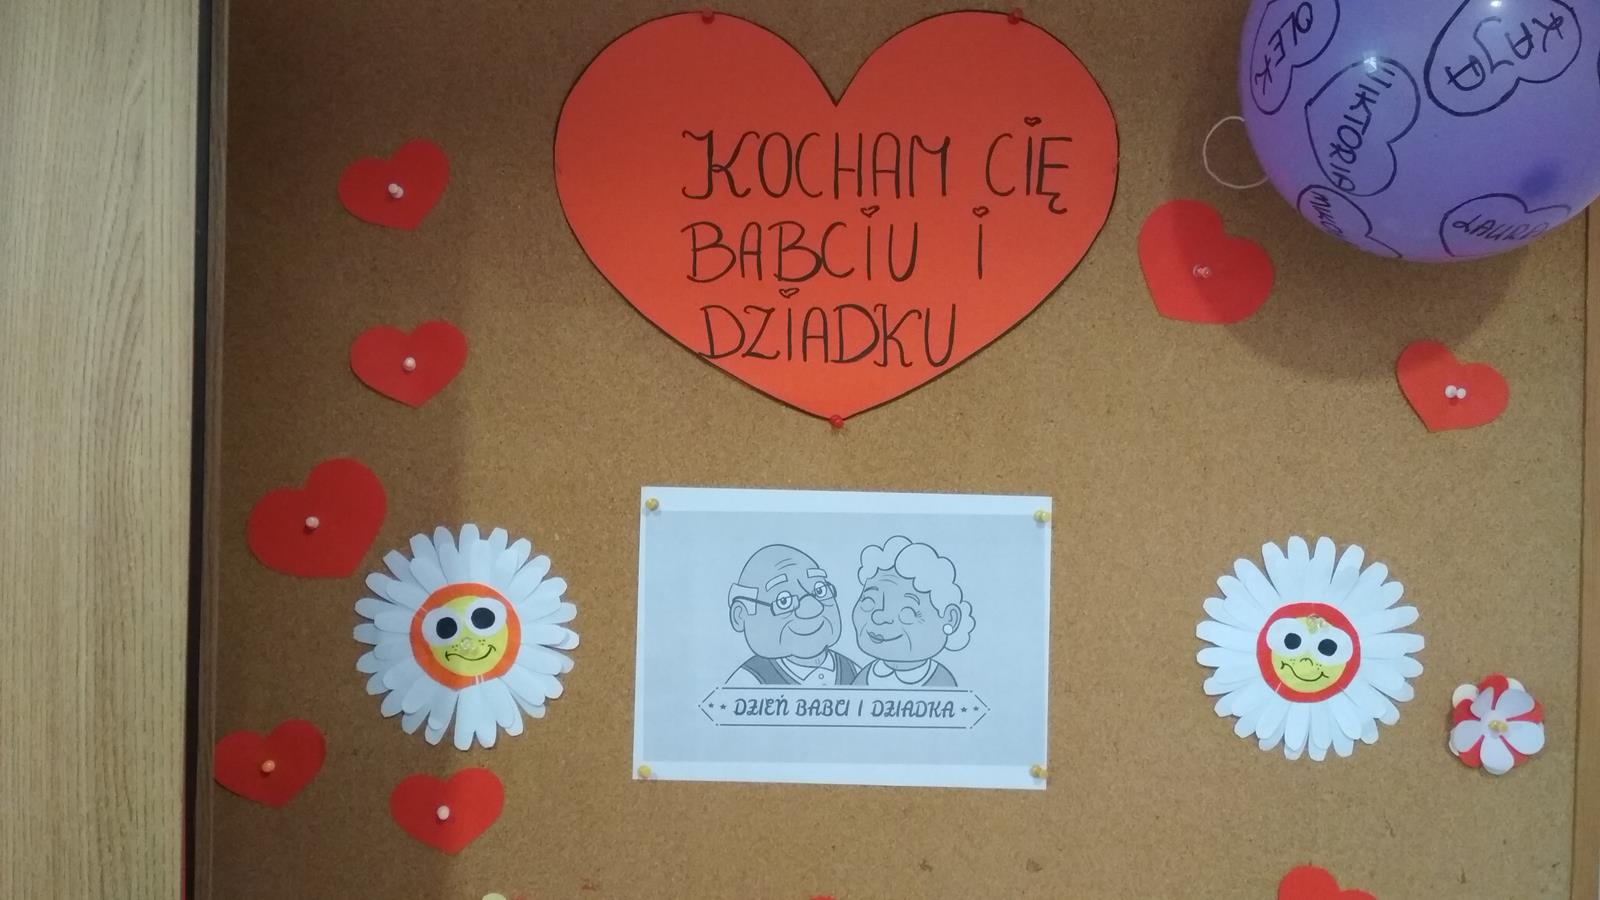 KOCHAM CIĘ
BABCIU I
DZIADKU
OLEK
KAJA
WIKTORIA
LAURA
DZIEŃ BABCI I DZIADKA